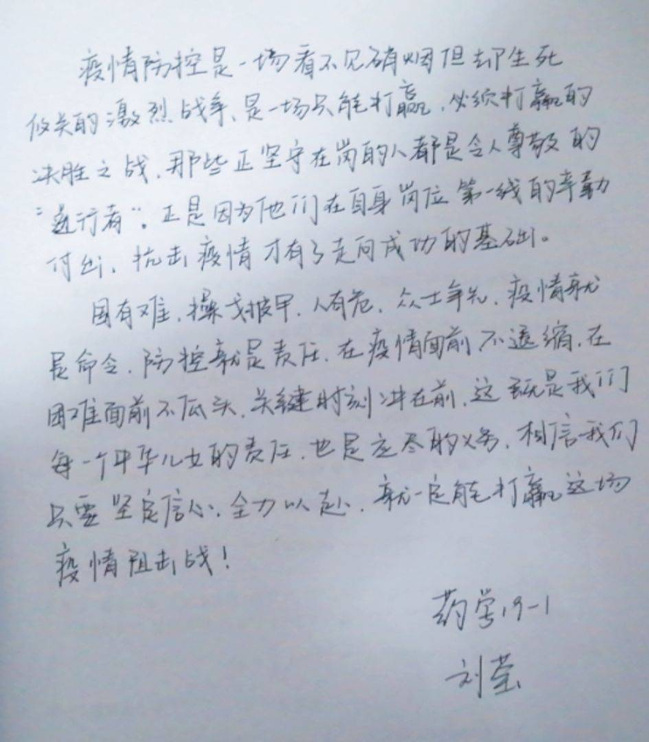 疫情防控是一场看不见硝烟但却生死
攸关的激烈战争、是一场只能打赢、必须打赢的
决胜之战、那些正坚守在岗的人都是令人尊敬的
“逆行者”。正是因为他们在自身岗位第一线的辛勤
付出、抗击疫情才有了走向成功的基础。
国有难、操戈披甲、人有危、众士争先、疫情就
是命令、防控就是责任、在疫情面前不退缩、在
困难面前不低头、关键时刻冲在前、这既是我们
每一个中华儿女的责任、也是应尽的义务、相信我们
只要坚定信心、全力以赴、就一定能打赢这场
疫情阻击战！
药学19-1
刘莹